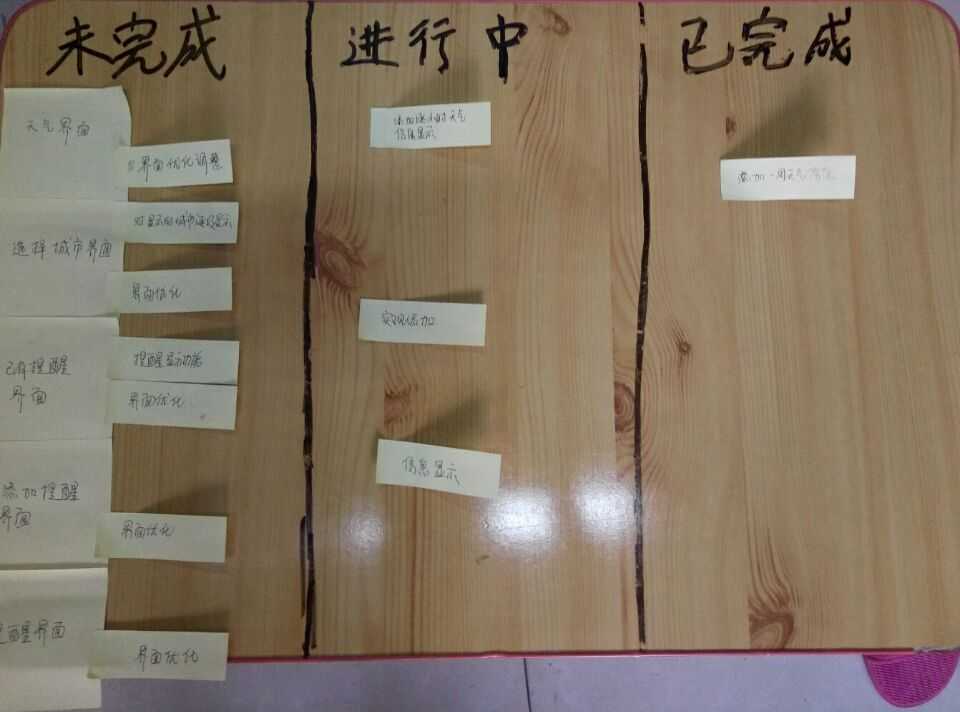 未完成
进行中
已完成
天气界面
界面优化调整
添加逐小时天气
信息显示
添加一周天气
选择城市界面
对显示的城市
显示
界面优化
实现添加
已有提醒
界面
提醒显示功能
界面优化
信息显示
添加提醒
界面
界面优化
醒界面
界面优化